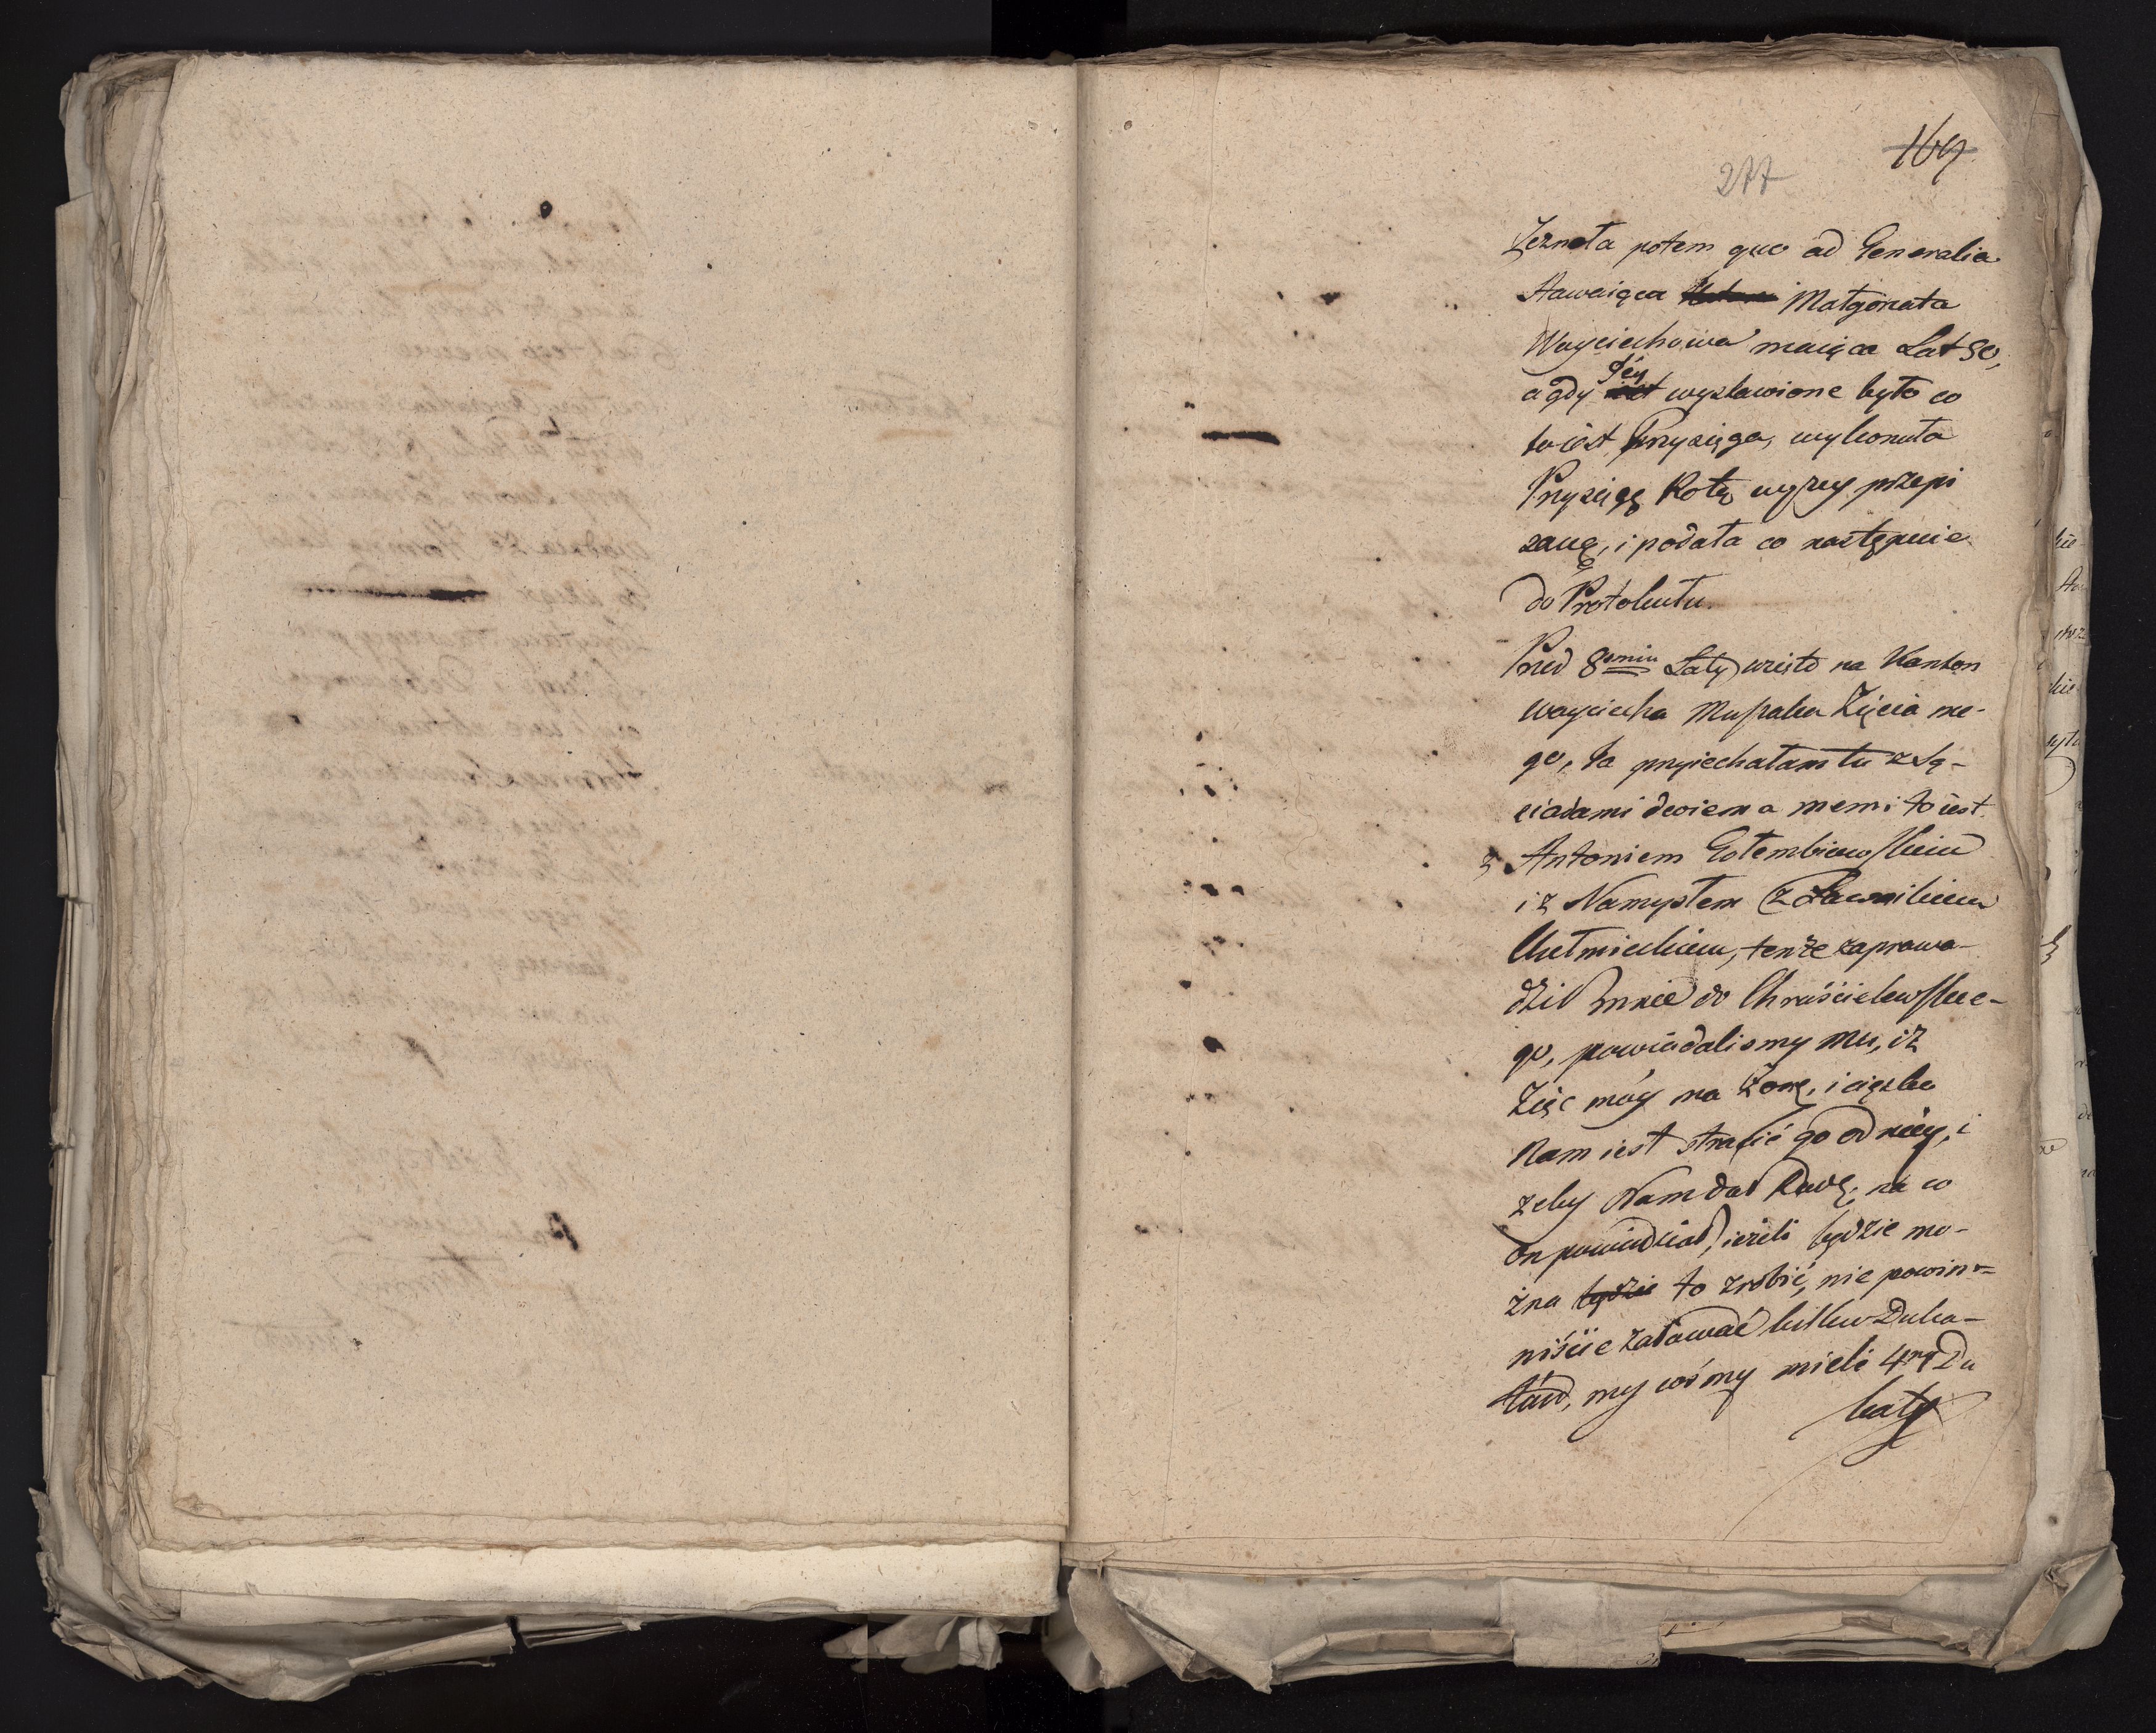 169
277
Zeznała potem quo ad Generalia
stawaiąca Małgorzata
Woyciechowa maiąca Lat 50,
a gdy Jéy wystawione było co
to iest Przysięga, wykonała
Przysięgę Rotą wyżey przepi
saną, i podała co następuie
do Protokułu.
Przed 8smiu Laty wzięto na Kanton
Woyciecha Musiała Zięcia me-
go, Ja przyiechałam tu z Są-
siadami dwiema memi to iest
z Antoniem Gołembiewskiem
i z Namysłem
Chełmieckiem, tenże zaprowa-
dził mnie do Chruścielewskie-
go, powiadalismy mu, iż
Zięc móy ma Zonę, i cięzko
Nam iest stracić go od niéy, i
zeby Nam dał Radę, na co
on powiedział, iezeli będzie mo-
żna będzie to zrobić, nie powin-
niście załować kilku Duka-
tów, my cośmy mieli 4ry Du
katy